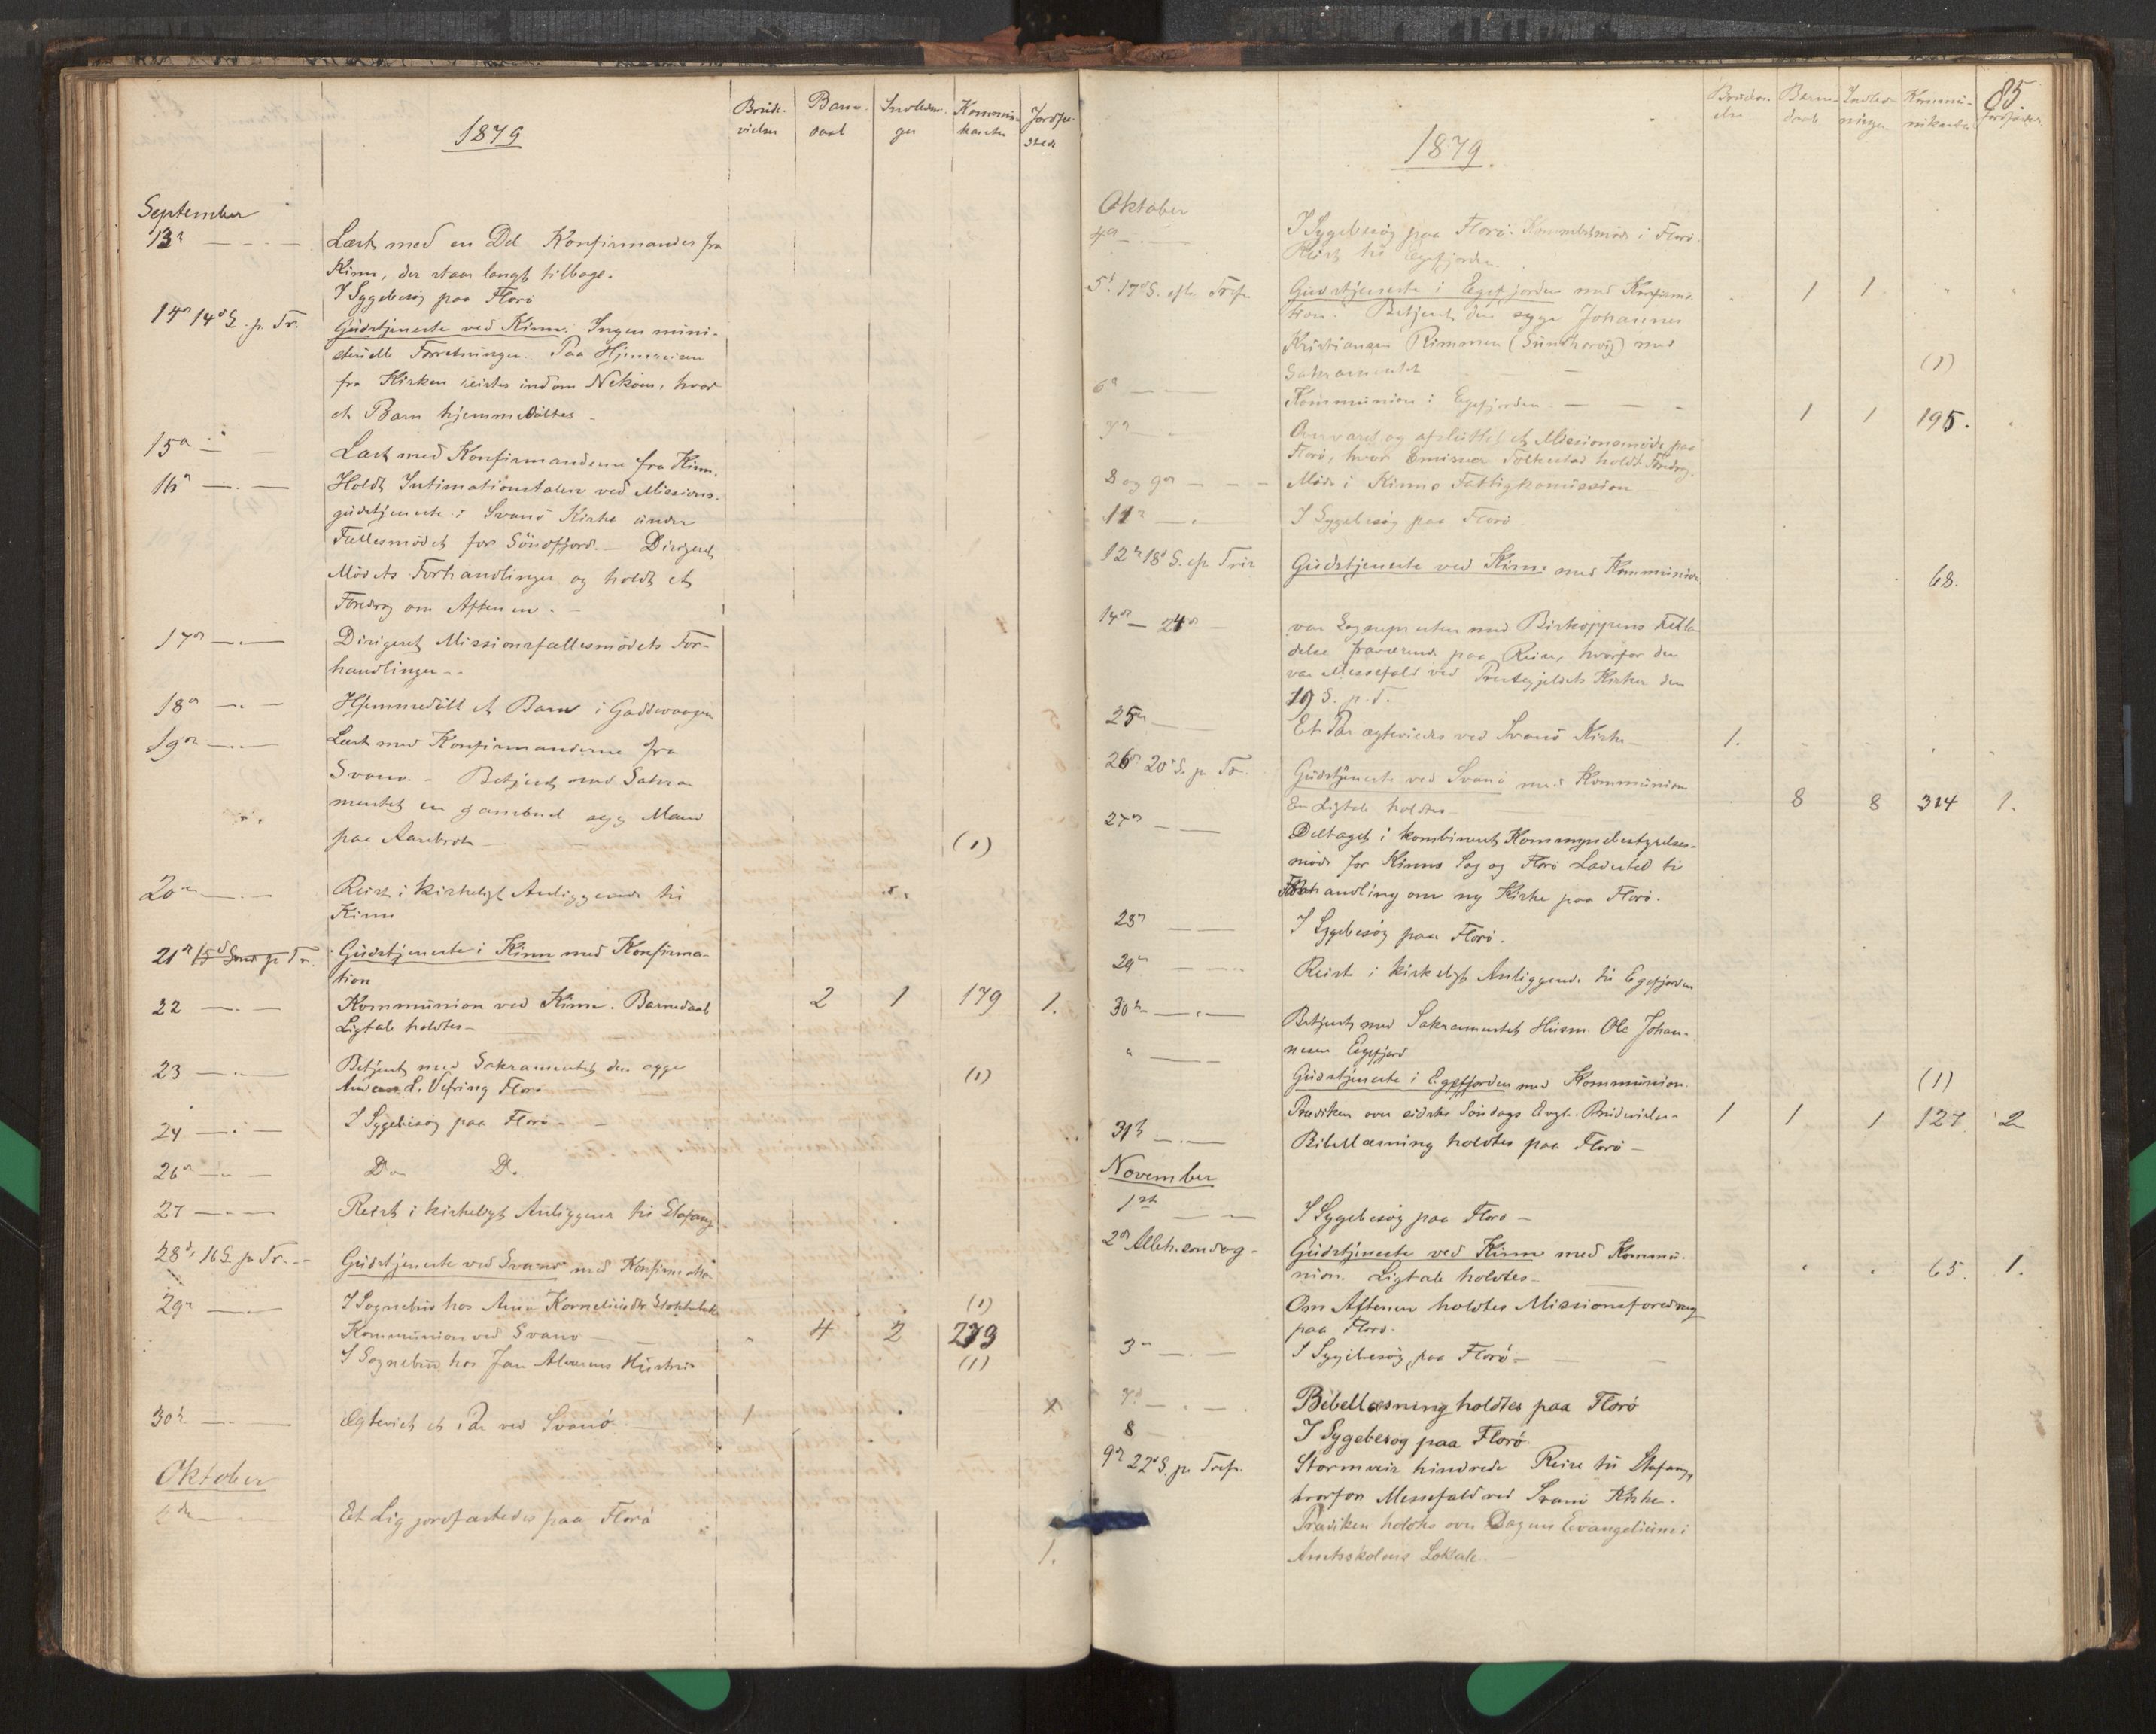 1879
Brude-
vielser
Barne-
daab
Indledn.
ger
Kommuni-
kanter
Jordfæ-
stede
September
13de
Læst med en Del Konfirmander fra
Kinn, der staar langt tilbage.
I Sygebesøg paa Florø
14de 14de S. p. Tr.
Gudstjeneste ved Kinn. Ingen mini-
sterielle Forretninger. Paa Hjemreisen
fra Kirken reistes indom Nekøen, hvor
et Barn hjemmedøbtes
15de
Læst med Konfirmanderne fra Kinn.
16de
Holdt Intimationstalen ved Missions-
gudstjeneste i Svanø Kirke under
Fællesmødet for Søndfjord. Dirigeret
Mødets Forhandlinger og holdt et
Foredrag om Aftenen.
17de
Dirigeret Missionsfællesmødets For-
handlinger
18de
Hjemmedøbt et Barn i Gaddevaagen
19de
Læst med Konfirmanderne fra
Svanø. Betjent med Sakra
mentet en gammel syg Mand
paa Aarebrot (1)
20de
Reist i kirkeligt Anliggende til
Kinn
21de 15de Sønd p Tr.
Gudstjeneste i Kinn med Konfirma-
tion
22
Kommunion ved Kinn. Barnedaab 2 1 179 1.
Ligtale holdtes
23
Betjent med Sakramentet den syge (1)
L. Vefring Florø
24
I Sygebesøg paa Florø
26de
Do D.
27
Reist i kirkeligt Anliggende til Stafang
28de 16 S. p. Tr.
Gudstjeneste ved Svanø med Konfirmation
29de
I Sognebud hos Anna Korneliusdtr (1)
Kommunion ved Svanø 4 2 273
I Sognebud hos Jan Hustru (1)
30te
Ægteviet et Par ved Svanø 1
Oktober
2den
Et Lig jordfæstedes paa Florø
1.
85.
1879.
Brudevi-
elser
Barne-
daab
Indled-
ninger
Kommu-
nikanter
Jordfæstede
Oktober
4de
I Sygebesøg paa Florø. i Florø.
Reist til Egefjorden.
5te 17de S. eft. Tref.
Gudstjeneste i Egefjorden med Konfirma- 1 1
tion. Betjent den syge Johannes
Kristiansen Rimmen med
Sakramentet (1)
6te
Kommunion i Egefjorden 1 1 195.
7de
og afsluttet et Missionsmøde paa
Florø, hvor Emissær Folkestad holdt Foredrag.
8 og 9de
Møde i Kinns Fattigkomission
11te
I Sygebesøg paa Florø
12te 18de S. eft Trin
Gudstjeneste ved Kinn med Kommunion 68.
14de – 24de
var Sognepresten med Biskoppens Tilla
delse fraværende paa Reise, hvorfor der
var Messefald ved Prestegjeldets Kirker den
19 S. p. T.
25de
Et Par ægteviedes ved Svanø Kirke 1.
26de 20de S. p. Tr.
Gudstjeneste ved Svanø med Kommunion
En Ligtale holdtes 8 8 314 1.
27de
Deltaget i kombineret Kommunebestyrelses-
møde for Kinns Sog og Florø Ladested til
Forhandling om ny Kirke paa Florø.
28de
I Sygebesøg paa Florø.
29de
Reist i kirkeligt Anliggende til Egefjorden
30te
Betjent med Sakramentet Husm. Ole Johan-
nesen Egefjord (1)
"
Gudstjeneste i Egefjorden med Kommunion.
Prædiken over sidste Søndags Evgl. Brudevielse 1 1 1 127 2
31te
Bibellæsning holdtes paa Florø
November
1ste
I Sygebesøg paa Florø
2den Alleh. søndag
Gudstjeneste ved Kinn med Kommu-
nion. Ligtale holdtes 65. 1.
Om Aftenen holdtes Missionsforedrag
paa Florø.
3de
I Sygebesøg paa Florø
7de
Bibellæsning holdtes paa Florø
8
I Sygebesøg paa Florø
9de 22de S. p. Tref.
Stormveir hindrede Reise til Stafang,
hvorfor Messefald ved Svanø Kirke.
Prædiken holdtes over Dagens Evangelium i
Amtsskolens Lokale.